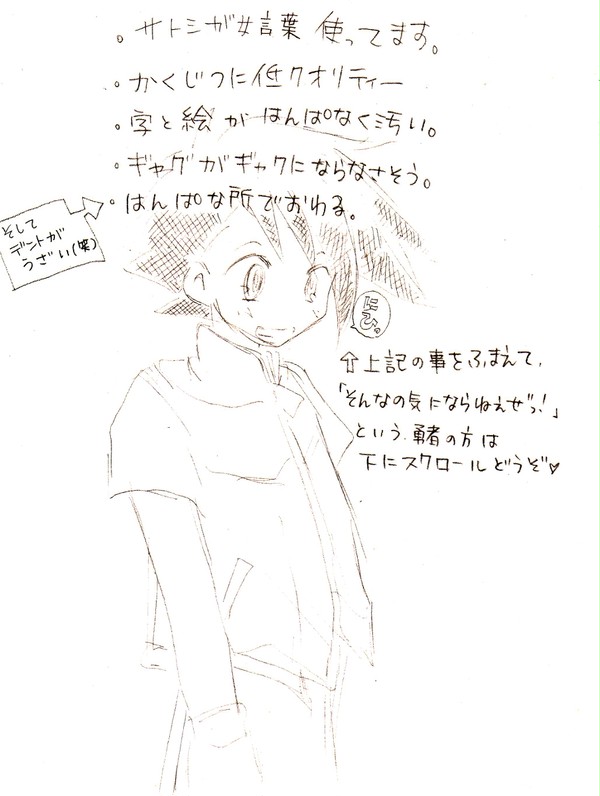 。サトシが女言葉 使ってます。
・かくじつに低クオリティー
・字と絵がはんぱなく汚い。
・ギャグがギャグにならなさそう。
・はんぱな所でおわる。
そして
デントが
うざい(笑)
にひっ
⇧上記の事をふまえて、
「そんなの気にならねえぜっ!」
という勇者の方は
下にスクロールどうぞ♥